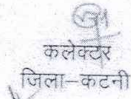 कलेक्टर
जिला–कटनी